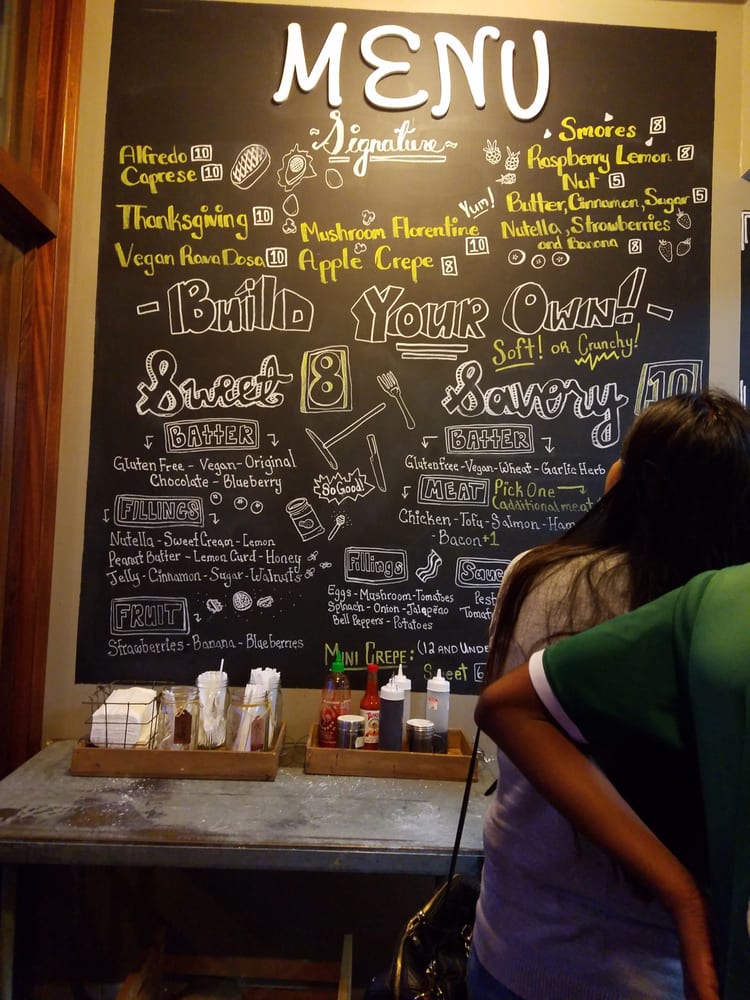 MENU
~Signature~
Alfredo 10
Caprese 10
Thanksgiving 10
Vegan Rava Dosa 10
Mushroom Florentine 10
Apple Crepe 8
Yum!
Smores 8
Raspberry Lemon 8
Nut 5
Butter, Cinnamon, Sugar 5
Nutella, Strawberries
and Banana 8
- Build Your Own! -
Soft! or Crunchy!
Sweet 8
BATTER
Gluten Free - Vegan - Original
Chocolate - Blueberry
FILLINGS
Nutella - Sweet Cream - Lemon
Peanut Batter - Lemon Curd - Honey
Jelly - Cinnamon - Sugar - Walnuts
FRUIT
Strawberries - Banana - Blueberries
So Good!
Savory 10
BATTER
Gluten Free - Vegan - Wheat - Garlic Herb
MEAT Pick One
(additional meat
Chicken - Tofu - Salmon - Ham
- Bacon +1
Fillings
Eggs - Mushroom - Tomatoes
Spinach - Onion - Jalapeño
Bell Peppers - Potatoes
MINI CREPE: (12 AND
Sweet 6